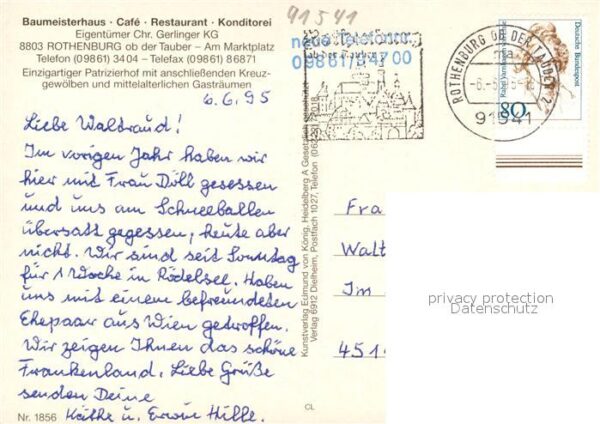 91541
Baumeisterhaus · Café · Restaurant · Konditorei
Eigentümer Chr. Gerlinger KG
8803 ROTHENBURG ob der Tauber – Am Marktplatz
Telefon (09861) 3404 – Telefax (09861) 86871
Einzigartiger Patrizierhof mit anschließenden Kreuz-
gewölben und mittelalterlichen Gasträumen
6.6.95
Liebe Waltraud!
Im vorigen Jahr haben wir
hier mit Frau Döll gesessen
und uns am Schneeballen
übersatt gegessen, heute aber
nicht. Wir sind seit Sonntag
für 1 Woche in Rödelsee. Haben
uns mit einem befreundeten
Ehepaar aus Wien getroffen.
Wir zeigen Ihnen das schöne
Frankenland. Liebe Grüße
senden Deine
Käthe u. Erwin Hille.
Nr. 1856
CL
Kunstverlag Edmund von König, Heidelberg A Gesetzlich geschützt
Verlag 6912 Dielheim, Postfach 1027, Telefon
neue Telefonnr.
09861/94700
ROTHENBURG OB DER TAUBER
91541
Deutsche Bundespost
80
Fra
Walt
Im
451
privacy protection
Datenschutz